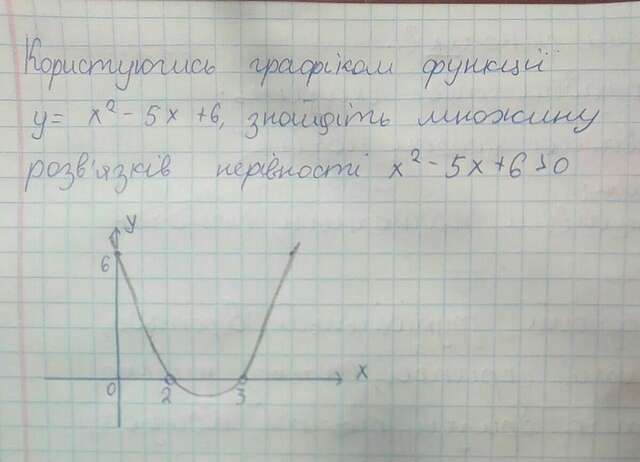 Користуючись графіком функції
y= x² - 5x +6, знайдіть множину
розв'язків нерівності x² - 5x + 6 > 0
y
6
0
2
3
x